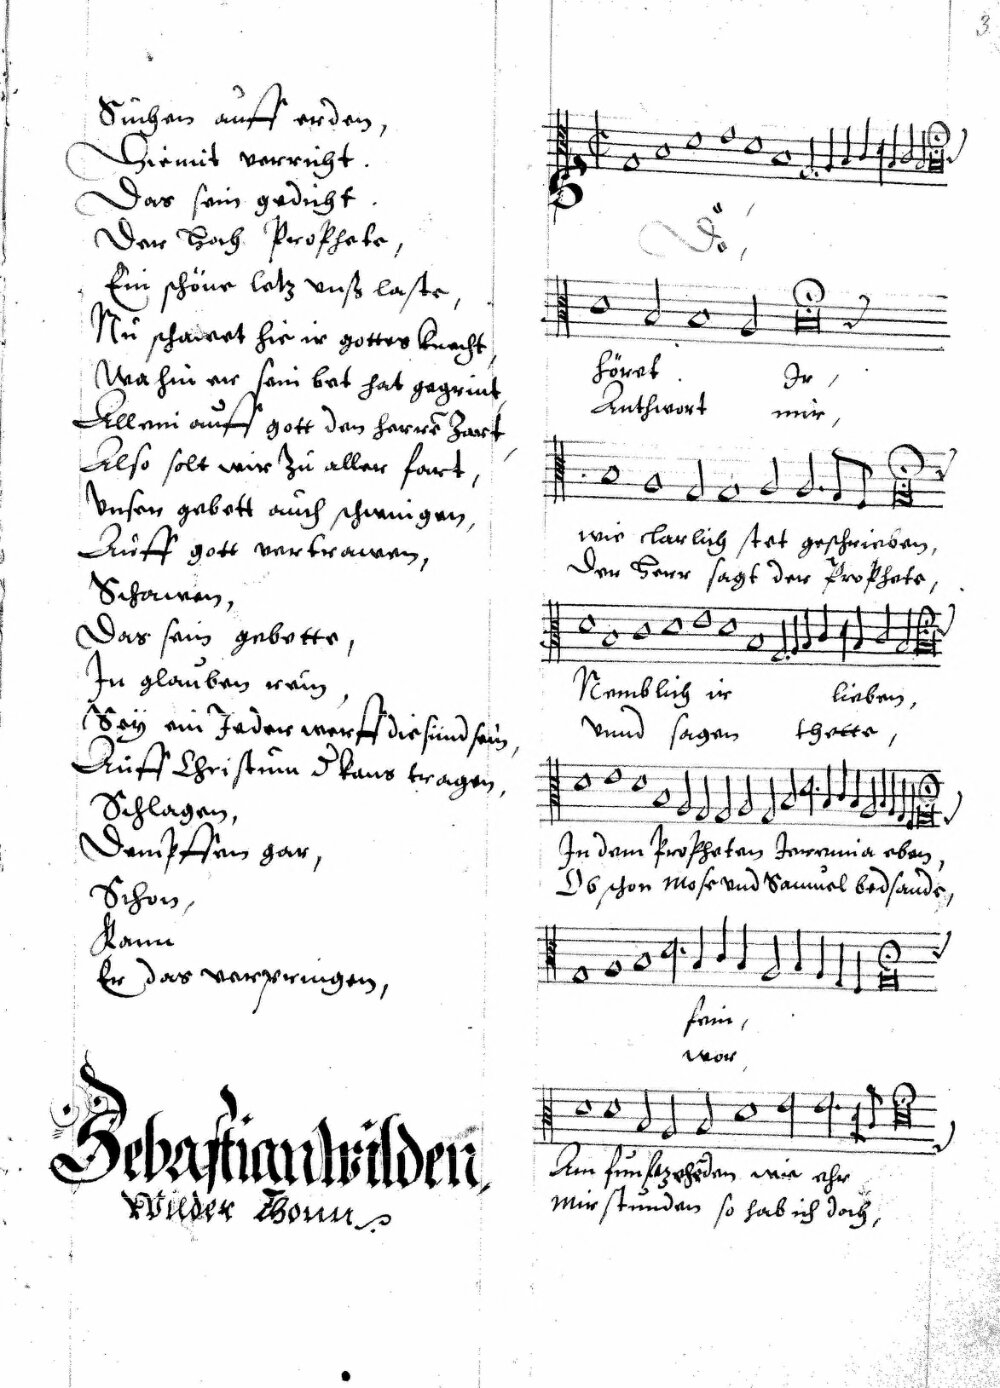 Suchen auff erden,
Hiemit verricht.
Das sein gedicht.
Der Hoch Prophete,
Ein schöne letz vnß laste,
Nu schawet hie ir gottes knecht,
Wa hin er sein bet hat gegrint,
Allein auff gott den herrē Zart,
Also solt wir Zu aller fart,
Vnser gebett auch schwingen,
Auff gott vertrawen,
Schawen,
Das sein gebette,
In glauben rein,
Sey ein Jeder werff die sünd sein,
Auff Christum d' kans tragen,
Schlagen,
Dempffen gar,
Schon,
Kann
Er das verpringen,
Sebastian wilden,
Wilder Thonn
3
höret Ir,
Anthwort mir,
wie clarlich stet geschrieben,
Der Herr sagt der Prophete,
Nemblich ir lieben,
vnnd sagen thette,
In dem Propheten Jeremia eben,
Ob schon Mose vnd Samuel bedsande,
fein,
vor,
Am funfzehēden wie ehr
Mir stunden so hab ich doch,